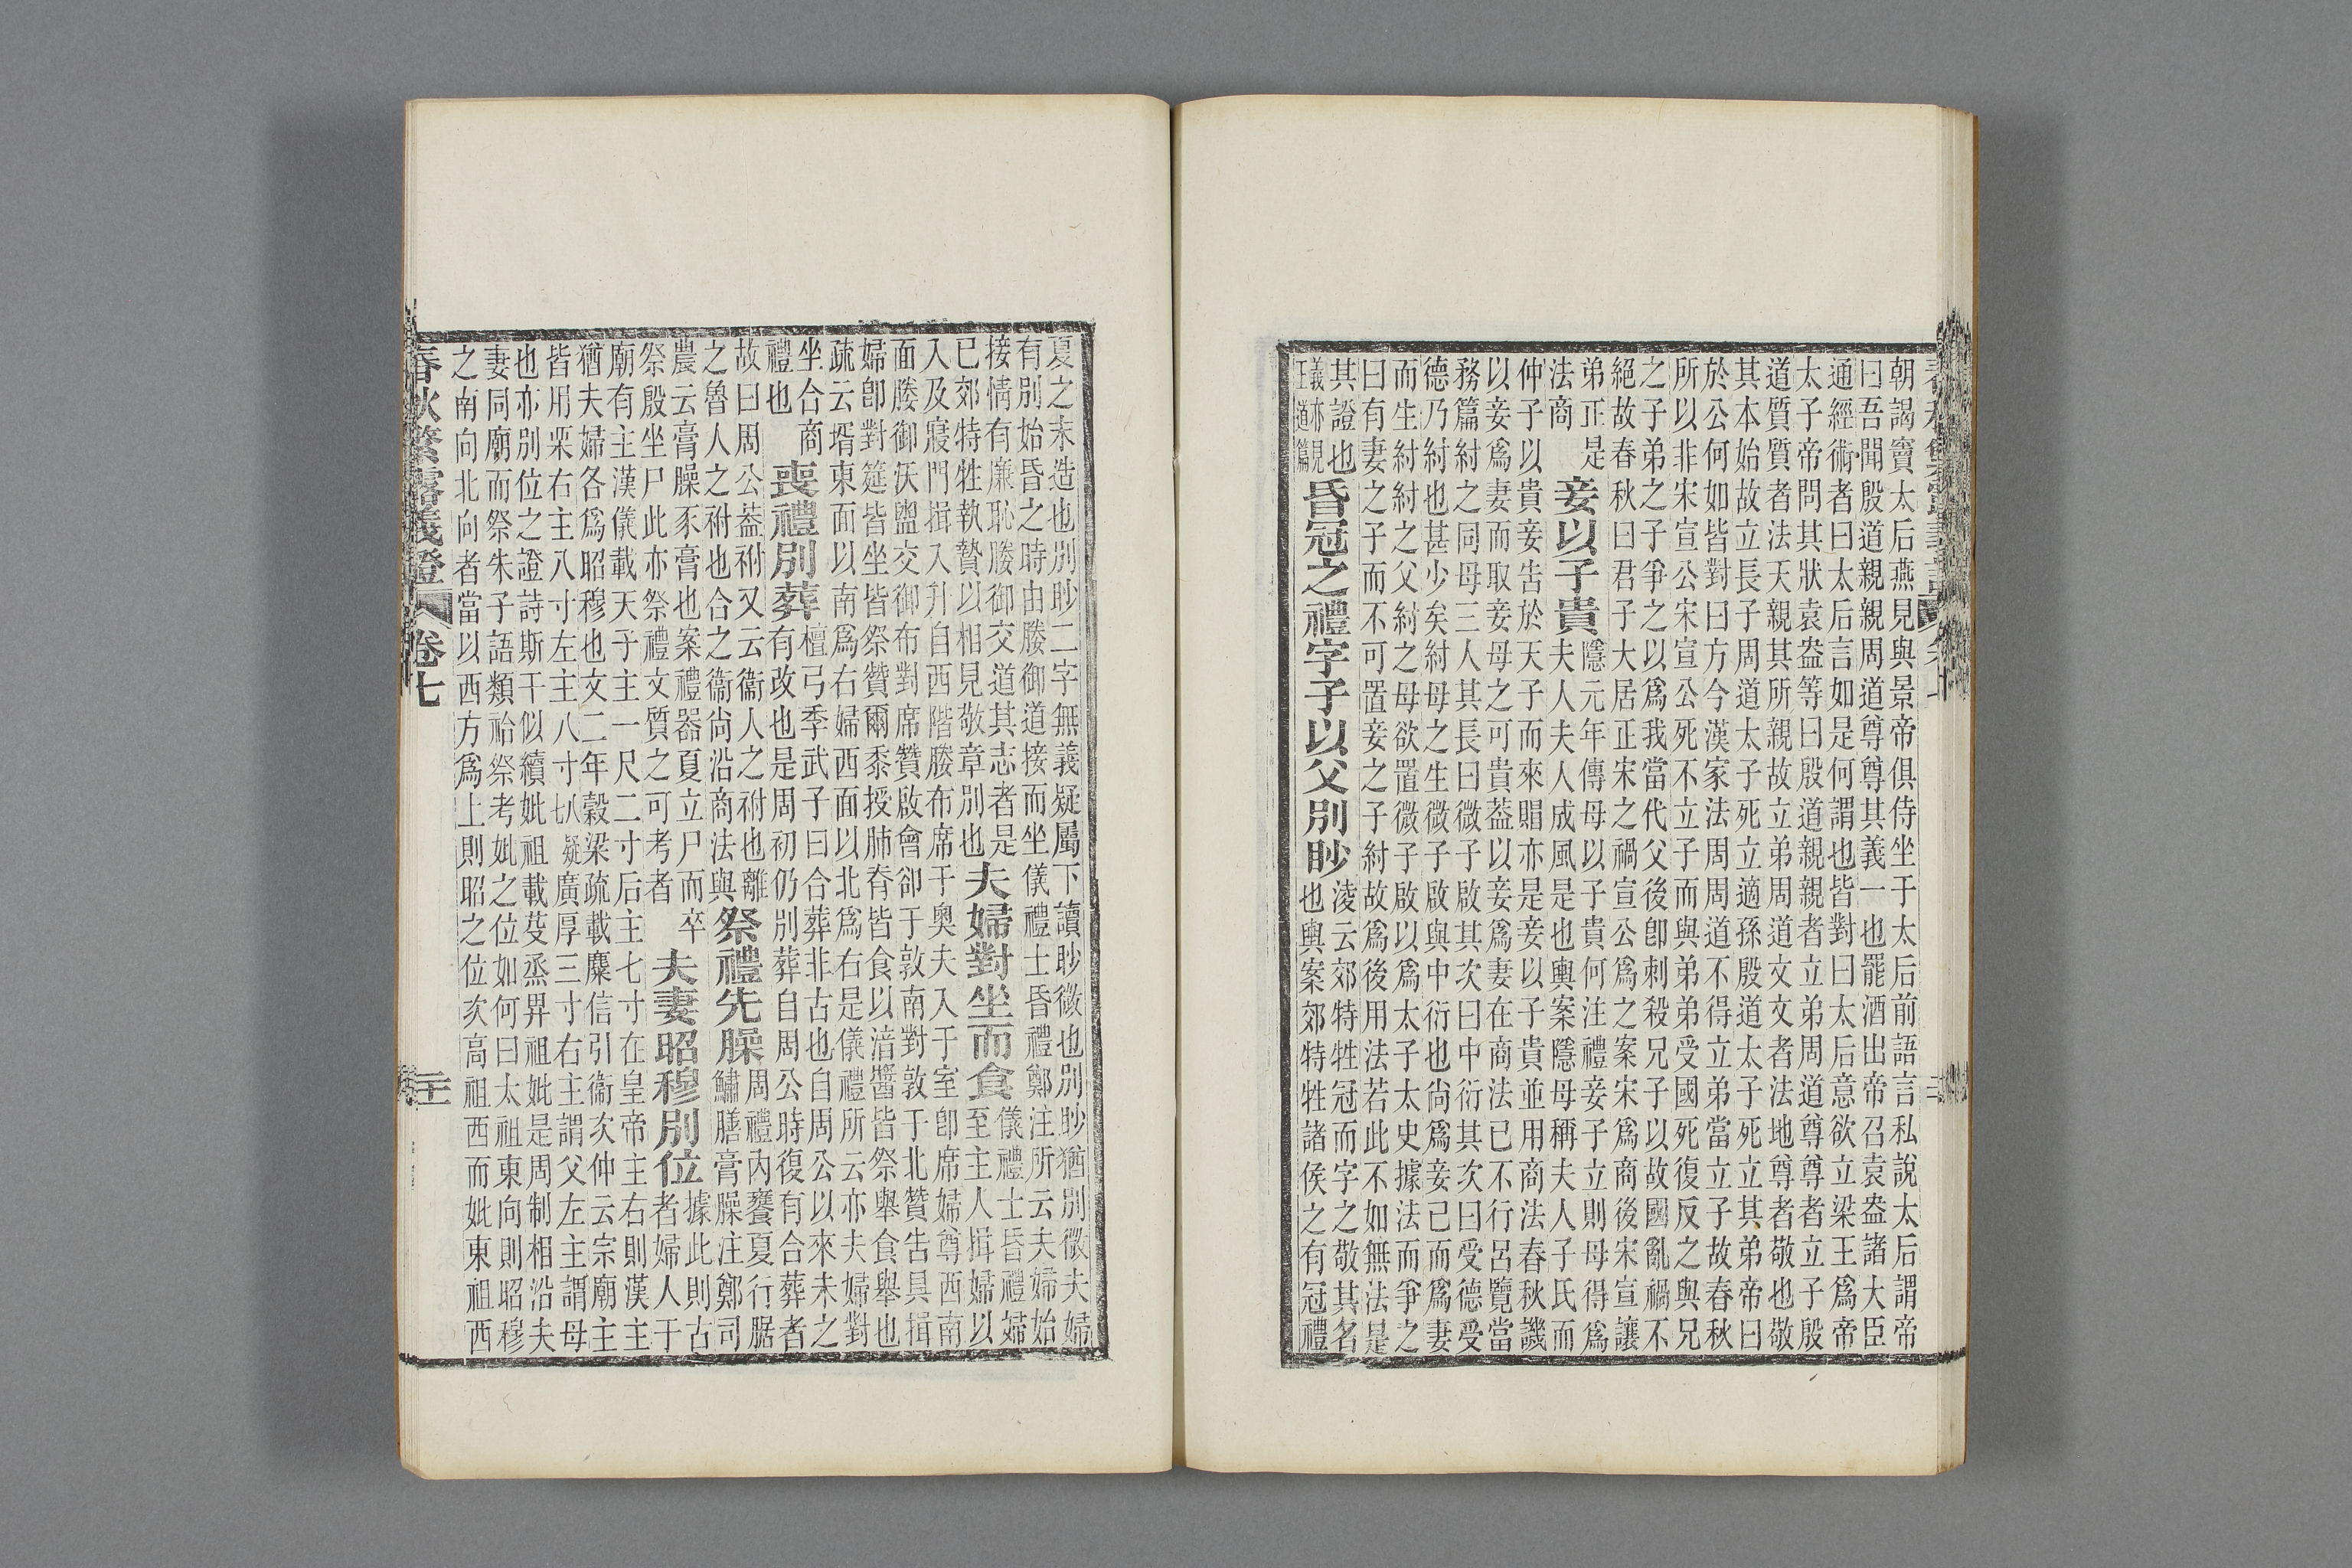 朝謁竇太后燕見與景帝俱侍坐于太后前語言私說太后謂帝
曰吾聞殷道親親周道尊尊其義一也罷酒出帝召袁盎諸大臣
通經術者曰太后言如是何謂也皆對曰太后意欲立梁王爲帝
太子帝問其狀袁盎等曰殷道親親者立弟周道尊尊者立子殷
道質質者法天親其所親故立弟周道文文者法地尊者敬也敬
其本始故立長子周道太子死立適孫殷道太子死立其弟帝曰
於公何如皆對曰方今漢家法周周道不得立弟當立子故春秋
所以非宋宣公宋宣公死不立子而與弟弟受國死復反之與兄
之子弟之子爭之以爲我當代父後卽刺殺兄子以故國亂禍不
絕故春秋曰君子大居正宋之禍宣公爲之案宋爲商後宋宣讓
弟正是
法商
妾以子貴
隱元年傳母以子貴何注禮妾子立則母得爲
夫人夫人成風是也輿案隱母稱夫人子氏而
仲子以貴妾告於天子而來賵亦是妾以子貴並用商法春秋譏
以妾爲妻而取妾母之可貴葢以妾爲妻在商法已不行呂覽當
務篇紂之同母三人其長曰微子啟其次曰中衍其次曰受德受
德乃紂也甚少矣紂母之生微子啟與中衍也尚爲妾已而爲妻
而生紂紂之父紂之母欲置微子啟以爲太子太史據法而爭之
曰有妻之子而不可置妾之子紂故爲後用法若此不如無法是
其證也
義亦見
王道篇
昏冠之禮字子以父別眇
淩云郊特牲冠而字之敬其名
也輿案郊特牲諸侯之有冠禮
夏之末造也別眇二字無義疑屬下讀眇微也別眇猶別微夫婦
有別始昏之時由媵御道接而坐儀禮士昏禮鄭注所云夫婦始
接情有廉恥媵御交道其志者是
已郊特牲執贄以相見敬章別也
夫婦對坐而食
儀禮士昏禮婦
至主人揖婦以
入及寢門揖入升自西階媵布席于奧夫入于室卽席婦尊西南
面媵御沃盥交御布對席贊啟會卻于敦南對敦于北贊告具揖
婦卽對筵皆坐皆祭贊爾黍授肺脊皆食以湆醬皆祭舉食舉也
疏云壻東面以南爲右婦西面以北爲右是儀禮所云亦夫婦對
坐合商
禮也
喪禮別葬
檀弓季武子曰合葬非古也自周公以來未之
有改也是周初仍別葬自周公時復有合葬者
故曰周公葢祔又云衞人之祔也離
之魯人之祔也合之衞尚沿商法與
祭禮先臊
周禮內饔夏行腒
鱐膳膏臊注鄭司
農云膏臊豕膏也案禮器夏立尸而卒
祭殷坐尸此亦祭禮文質之可考者
夫妻昭穆別位
據此則古
者婦人于
廟有主漢儀載天子主一尺二寸后主七寸在皇帝主右則漢主
猶夫婦各爲昭穆也文二年穀梁疏載麋信引衞次仲云宗廟主
皆用栗右主八寸左主八寸八疑七廣厚三寸右主謂父左主謂母
也亦別位之證詩斯干似續妣祖載芟烝畀祖妣是周制相沿夫
妻同廟而祭朱子語類祫祭考妣之位如何曰太祖東向則昭穆
之南向北向者當以西方爲上則昭之位次高祖西而妣東祖西
春秋繁露義證 卷七